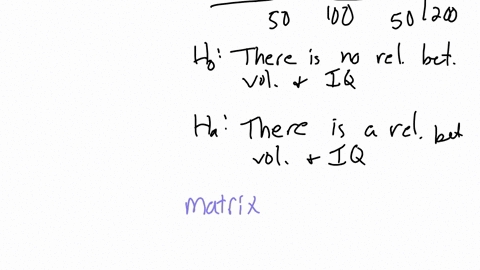 50 100 50 | 200
H₀: There is no rel. bet.
vol. + IQ
Hₐ: There is a rel. bet
vol. + IQ
matrix